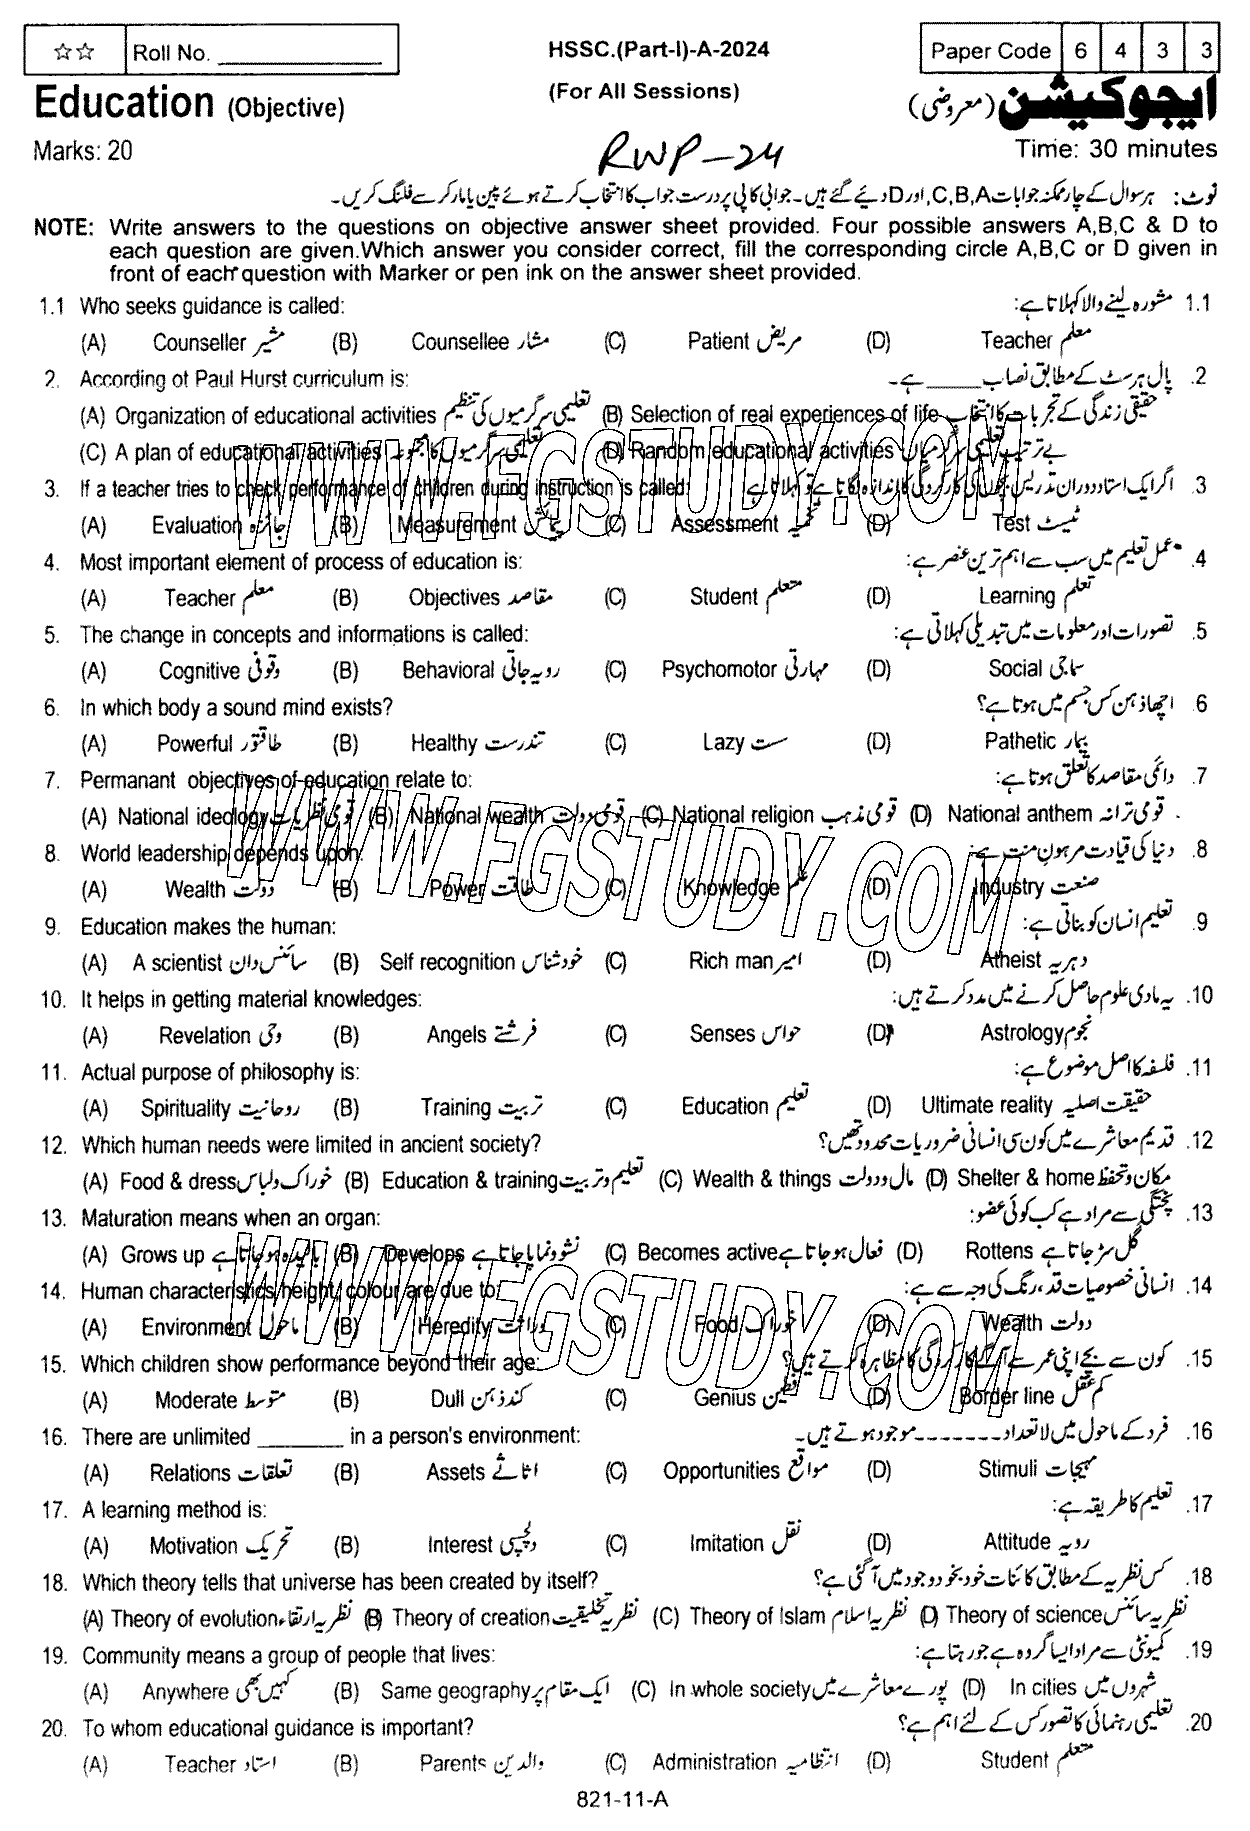 ☆☆ Roll No. ____________ HSSC.(Part-I)-A-2024 Paper Code 6 4 3 3
Education (Objective) (For All Sessions) ایجوکیشن (معروضی)
Marks: 20 RWP-24 Time: 30 minutes
نوٹ: ہر سوال کے چار ممکنہ جوابات A,B,C اور D دیئے گئے ہیں۔ جوابی کاپی پر درست جواب کا انتخاب کرتے ہوئے پین یا مارکر سے فلنگ کریں۔
NOTE: Write answers to the questions on objective answer sheet provided. Four possible answers A,B,C & D to
each question are given.Which answer you consider correct, fill the corresponding circle A,B,C or D given in
front of each question with Marker or pen ink on the answer sheet provided.
1.1 Who seeks guidance is called: مشورہ لینے والا کہلاتا ہے: 1.1
(A) Counseller مشیر (B) Counsellee مشار (C) Patient مریض (D) Teacher معلم
2. According ot Paul Hurst curriculum is: پال ہرسٹ کے مطابق نصاب _____ ہے۔ .2
(A) Organization of educational activities تعلیمی سرگرمیوں کی تنظیم (B) Selection of real experiences of life حقیقی زندگی کے تجربات کا انتخاب
(C) A plan of educational activities تعلیمی سرگرمیوں کا مجموعہ (D) Random educational activities بے ترتیب تعلیمی سرگرمیاں
3. If a teacher tries to check performance of children during instruction is called: اگر ایک استاد دوران تدریس بچوں کی کارکردگی کا اندازہ لگاتا ہے تو کہلاتا ہے .3
(A) Evaluation جائزہ (B) Measurement پیمائش (C) Assessment تخمینہ (D) Test ٹیسٹ
4. Most important element of process of education is: عمل تعلیم میں سب سے اہم ترین عنصر ہے: .4
(A) Teacher معلم (B) Objectives مقاصد (C) Student متعلم (D) Learning تعلم
5. The change in concepts and informations is called: تصورات اور معلومات میں تبدیلی کہلاتی ہے: .5
(A) Cognitive وقوفی (B) Behavioral رویہ جاتی (C) Psychomotor مہارتی (D) Social سماجی
6. In which body a sound mind exists? اچھا ذہن کس جسم میں ہوتا ہے؟ .6
(A) Powerful طاقتور (B) Healthy تندرست (C) Lazy سست (D) Pathetic بیمار
7. Permanant objectives of education relate to: دائمی مقاصد کا تعلق ہوتا ہے: .7
(A) National ideology قومی نظریات (B) National wealth قومی دولت (C) National religion قومی مذہب (D) National anthem قومی ترانہ
8. World leadership depends upon: دنیا کی قیادت مرہون منت ہے: .8
(A) Wealth دولت (B) Power طاقت (C) Knowledge علم (D) Industry صنعت
9. Education makes the human: تعلیم انسان کو بناتی ہے: .9
(A) A scientist سائنس دان (B) Self recognition خود شناس (C) Rich man امیر (D) Atheist دہریہ
10. It helps in getting material knowledges: یہ مادی علوم حاصل کرنے میں مدد کرتے ہیں: .10
(A) Revelation وحی (B) Angels فرشتے (C) Senses حواس (D) Astrology نجوم
11. Actual purpose of philosophy is: فلسفہ کا اصل موضوع ہے: .11
(A) Spirituality روحانیت (B) Training تربیت (C) Education تعلیم (D) Ultimate reality حقیقت اصلیہ
12. Which human needs were limited in ancient society? قدیم معاشرے میں کون سی انسانی ضروریات محدود تھیں؟ .12
(A) Food & dress خوراک و لباس (B) Education & training تعلیم و تربیت (C) Wealth & things مال و دولت (D) Shelter & home مکان و تحفظ
13. Maturation means when an organ: پختگی سے مراد ہے کب کوئی عضو: .13
(A) Grows up بالیدہ ہو جاتا ہے (B) Develops نشوونما پا جاتا ہے (C) Becomes active فعال ہو جاتا ہے (D) Rottens گل سڑ جاتا ہے
14. Human characteristics height, colour are due to: انسانی خصوصیات قد، رنگ کی وجہ سے ہے: .14
(A) Environment ماحول (B) Heredity وراثت (C) Food خوراک (D) Wealth دولت
15. Which children show performance beyond their age: کون سے بچے اپنی عمر سے آگے کارکردگی کا مظاہرہ کرتے ہیں؟ .15
(A) Moderate متوسط (B) Dull کند ذہن (C) Genius فطین (D) Border line کم عقل
16. There are unlimited ________ in a person's environment: فرد کے ماحول میں لاتعداد -------- موجود ہوتے ہیں۔ .16
(A) Relations تعلقات (B) Assets اثاثے (C) Opportunities مواقع (D) Stimuli مہیجات
17. A learning method is: تعلیم کا طریقہ ہے: .17
(A) Motivation تحریک (B) Interest دلچسپی (C) Imitation نقل (D) Attitude رویہ
18. Which theory tells that universe has been created by itself? کس نظریہ کے مطابق کائنات خود بخود وجود میں آ گئی ہے؟ .18
(A) Theory of evolution نظریہ ارتقاء (B) Theory of creation نظریہ تخلیقیت (C) Theory of Islam نظریہ اسلام (D) Theory of science نظریہ سائنس
19. Community means a group of people that lives: کمیونٹی سے مراد ایسا گروہ ہے جو رہتا ہے: .19
(A) Anywhere کہیں بھی (B) Same geography ایک مقام پر (C) In whole society پورے معاشرے میں (D) In cities شہروں میں
20. To whom educational guidance is important? تعلیمی رہنمائی کا تصور کس کے لئے اہم ہے؟ .20
(A) Teacher استاد (B) Parents والدین (C) Administration انتظامیہ (D) Student متعلم
821-11-A
WWW.FGSTUDY.COM
WWW.FGSTUDY.COM
WWW.FGSTUDY.COM